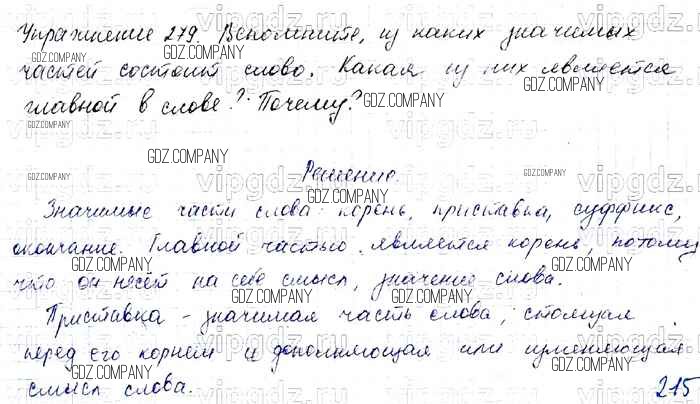 Упражнение 279. Вспомните, из каких значимых
частей состоит слово. Какая из них является
главной в слове? Почему?
Решение.
Значимые части слова: корень, приставка, суффикс,
окончание. Главной частью является корень, потому
что он несёт на себе смысл, значение слова.
Приставка - значимая часть слова, стоящая
перед его корнем и дополняющая или изменяющая
смысл слова.
215
GDZ.COMPANY
vipgdz.ru